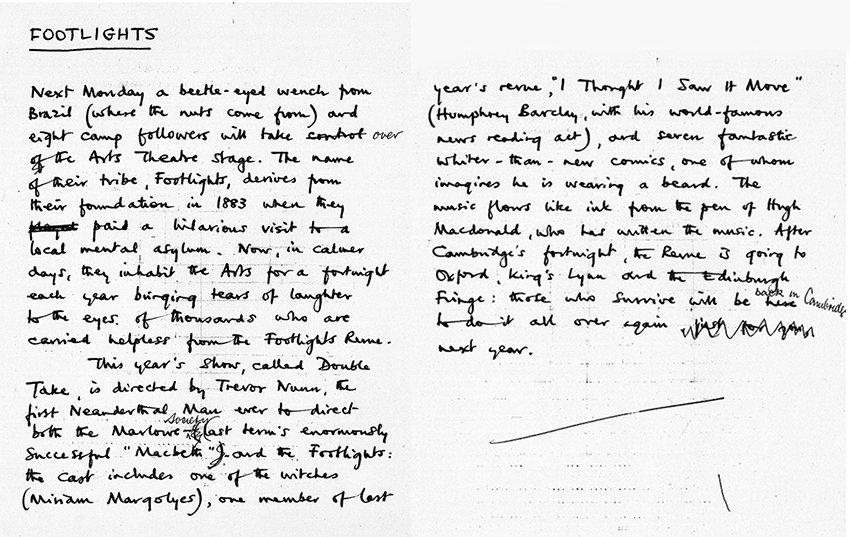 FOOTLIGHTS
Next Monday a beetle-eyed wench from
Brazil (where the nuts come from) and
eight camp followers will take control over
of the Arts Theatre stage. The name
of their tribe, Footlights, derives from
their foundation in 1883 when they
played paid a hilarious visit to a
local mental asylum. Now, in calmer
days, they inhabit the Arts for a fortnight
each year bringing tears of laughter
to the eyes of thousands who are
carried helpless from the Footlights Revue.
This year's show, called Double
Take, is directed by Trevor Nunn, the
first Neanderthal Man ever to direct
society
both the Marlowe (last term's enormously
successful "Macbeth") and the Footlights:
the cast includes one of the witches
(Miriam Margolyes), one member of last
year's revue, "I Thought I Saw It Move"
(Humphrey Barclay, with his world-famous
news reading act), and seven fantastic
whiter-than-new comics, one of whom
imagines he is wearing a beard. The
music flows like ink from the pen of Hugh
Macdonald, who has written the music. After
Cambridge's fortnight, the Revue is going to
Oxford, King's Lynn and the Edinburgh
Fringe: those who survive will be here back in Cambridge
to do it all over again
next year.